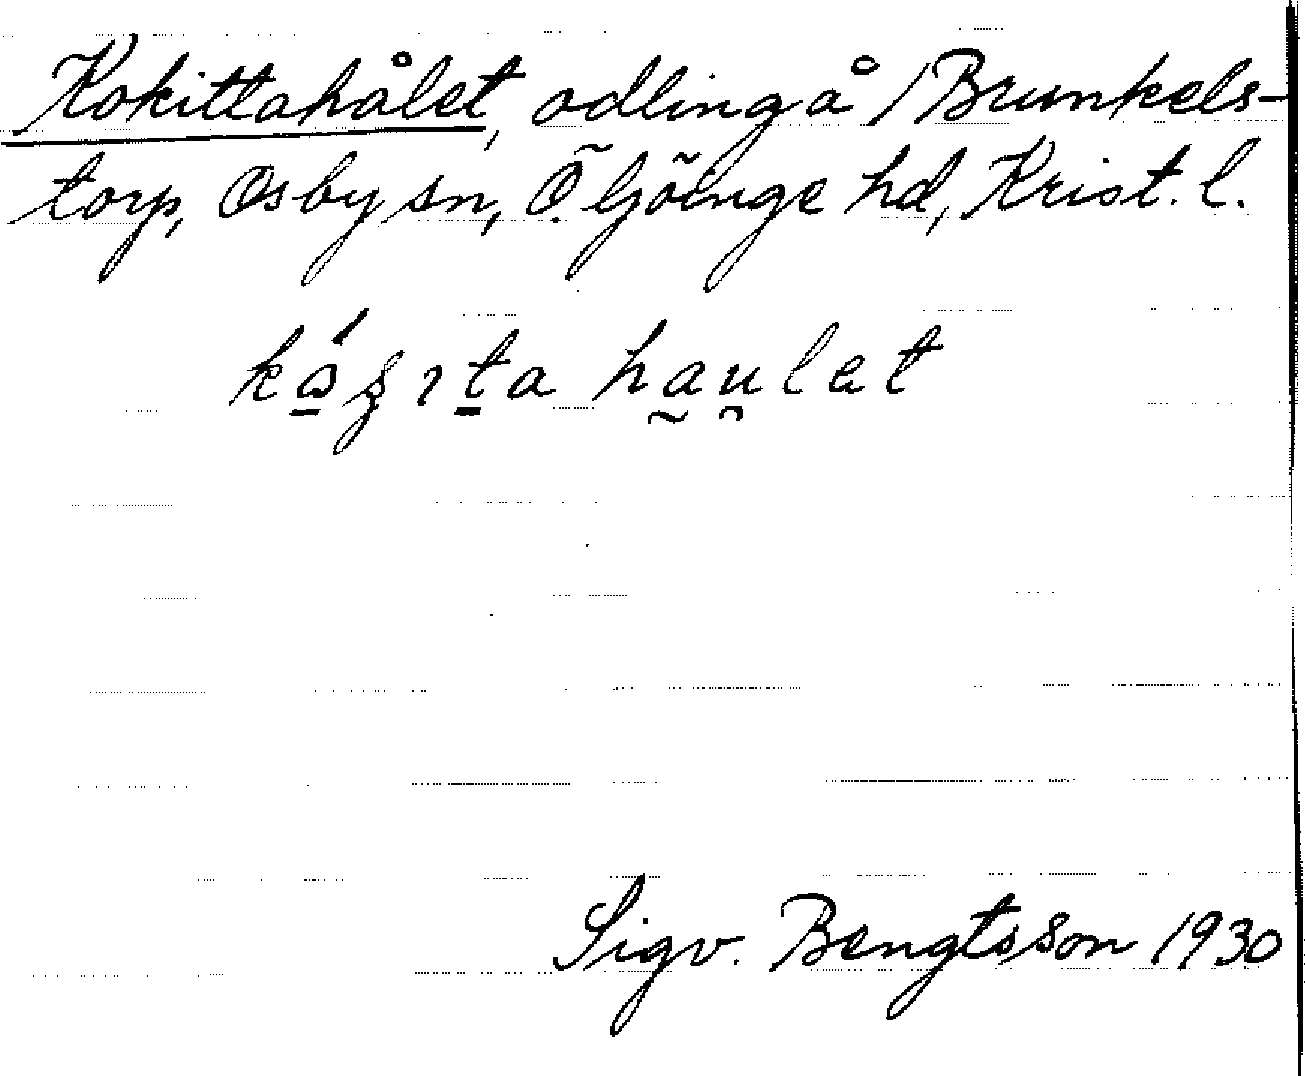 Kokittahålet, odling å Brunkels-
torp, Osby sn, Ö Göinge hd, Krist. l.
haulet
Sigv. Bengtsson 1930